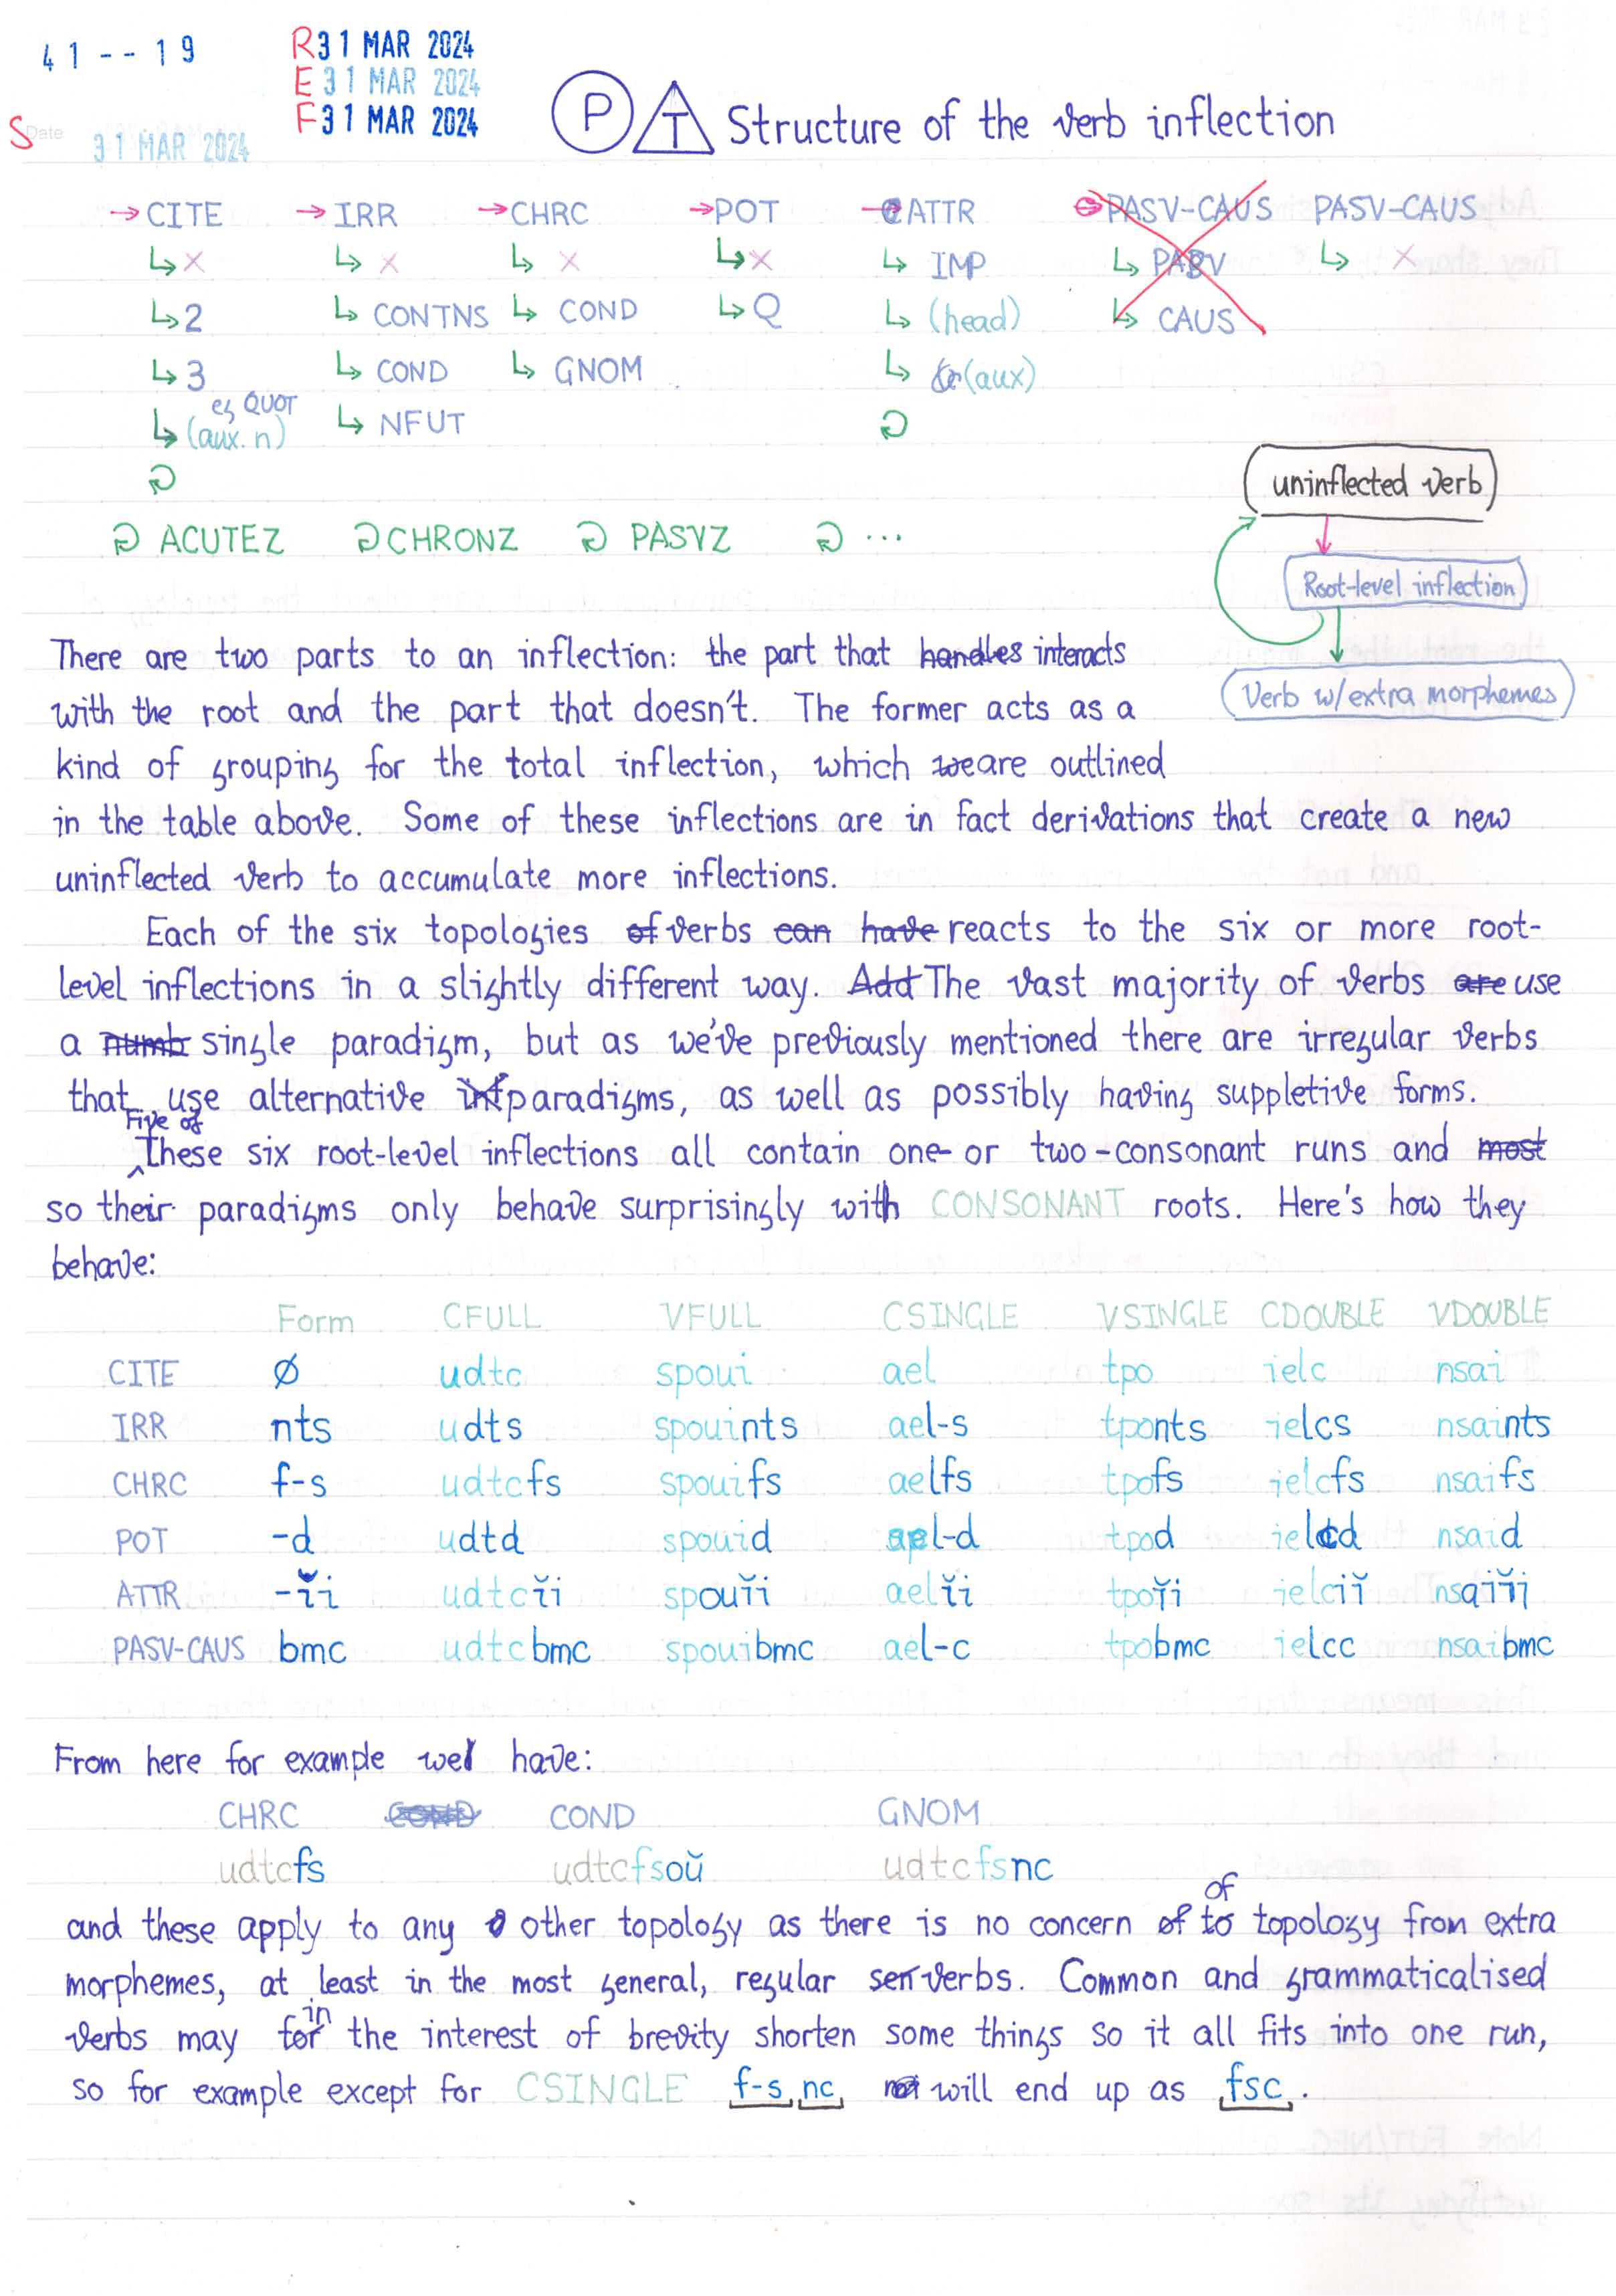 41--19
R31 MAR 2024
E 31 MAR 2024
F31 MAR 2024
S Date 31 MAR 2024
P T Structure of the verb inflection
→CITE →IRR →CHRC →POT →ATTR PASV-CAUS PASV-CAUS
↳× ↳× ↳× ↳× ↳ IMP ↳ PASV ↳ ×
↳2 ↳ CONTNS ↳ COND ↳Q ↳ (head) ↳ CAUS
↳3 ↳ COND ↳ GNOM ↳ (aux)
eg QUOT
↳(aux.n) ↳ NFUT
ACUTEZ CHRONZ PASVZ ...
uninflected verb
Root-level inflection
Verb w/extra morphemes
There are two parts to an inflection: the part that handles interacts
with the root and the part that doesn't. The former acts as a
kind of grouping for the total inflection, which we are outlined
in the table above. Some of these inflections are in fact derivations that create a new
uninflected verb to accumulate more inflections.
Each of the six topologies of verbs can have reacts to the six or more root-
level inflections in a slightly different way. Add The vast majority of verbs are use
a numb single paradigm, but as we've previously mentioned there are irregular verbs
that use alternative inf paradigms, as well as possibly having suppletive forms.
Five of
These six root-level inflections all contain one- or two-consonant runs and most
so their paradigms only behave surprisingly with CONSONANT roots. Here's how they
behave:
Form CFULL VFULL CSINGLE VSINGLE CDOUBLE VDOUBLE
CITE ∅ udtc spoui ael tpo ielc nsai
IRR nts udts spouints ael-s tponts ielcs nsaints
CHRC f-s udtcfs spouifs aelfs tpofs ielcfs nsaifs
POT -d udtd spouid ael-d tpod ielcd nsaid
ATTR -ĭi udtcĭi spouĭi aelĭi tpoĭi ielciĭ nsaiĭi
PASV-CAUS bmc udtcbmc spouibmc ael-c tpobmc ielcc nsaibmc
From here for example we have:
CHRC COND COND GNOM
udtcfs udtcfsoŭ udtcfsnc
and these apply to any other topology as there is no concern of to of topology from extra
morphemes, at least in the most general, regular ser verbs. Common and grammaticalised
verbs may for in the interest of brevity shorten some things so it all fits into one run,
so for example except for CSINGLE f-s nc will end up as fsc.